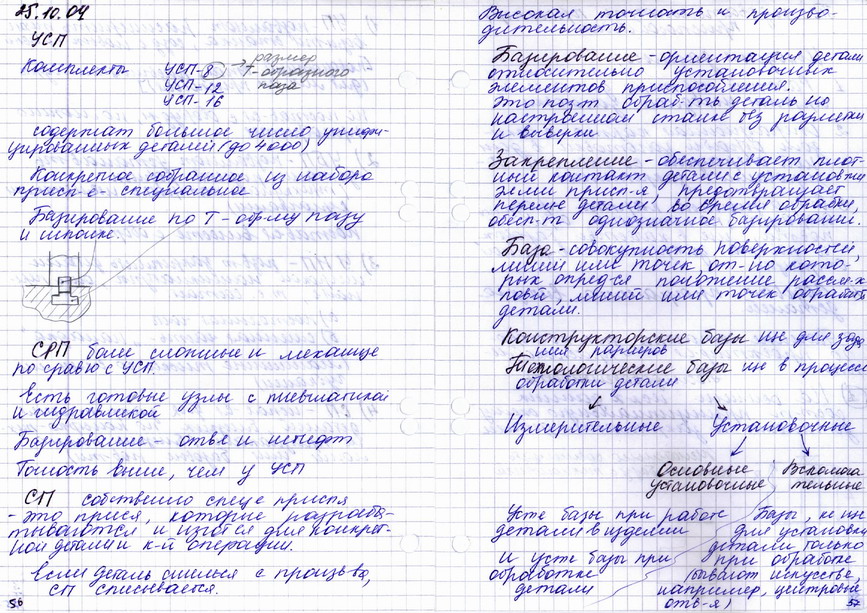 25.10.04
УСП
Комплекты УСП-8 → размер
УСП-12 Т-образного
УСП-16 паза
содержат большое число унифи-
цированных деталей (до 4000)
Конкретное собранное из набора
присп-е - специальное
Базирование по Т-обр-му пазу
и шпонке.
СРП более сложные и механиз
по сравн с УСП.
Есть готовые узлы с пневматикой
и гидравликой
Базирование - отв и
Точность выше, чем у УСП
СП собственно спец присп
- это присп, которые разраба-
тываются и изг для конкрет-
ной детали и к-й операции.
Если деталь снялась с произв-ва,
СП списывается.
56
Высокая точность и произво-
дительность.
Базирование - ориентация детали
относительно установочных
элементов приспособления.
Это позв обраб-ть деталь на
настроенном станке без разметки
и выверки
Закрепление - обеспечивает плот-
ный контакт детали с установ
эл-ми присп-я, предотвращает
перем-е детали, во время обраб,
обесп-т однозначное базирование.
База - совокупность поверхностей,
линий или точек, от-но кото-
рых опред-ся положение рассм-х
пов-й, линий или точек обрабат
детали.
Конструкторские базы исп для
или размеров
Технологические базы исп в процессе
обработки детали
Измерительные Установочные
Основные Вспомога
установочные тельные
Уст базы при работе
детали в изделии
и уст базы при
обработке
детали
Базы, не исп
для установки
детали только
при обработке
(бывают искусств,
например, центров
отв-я)
57